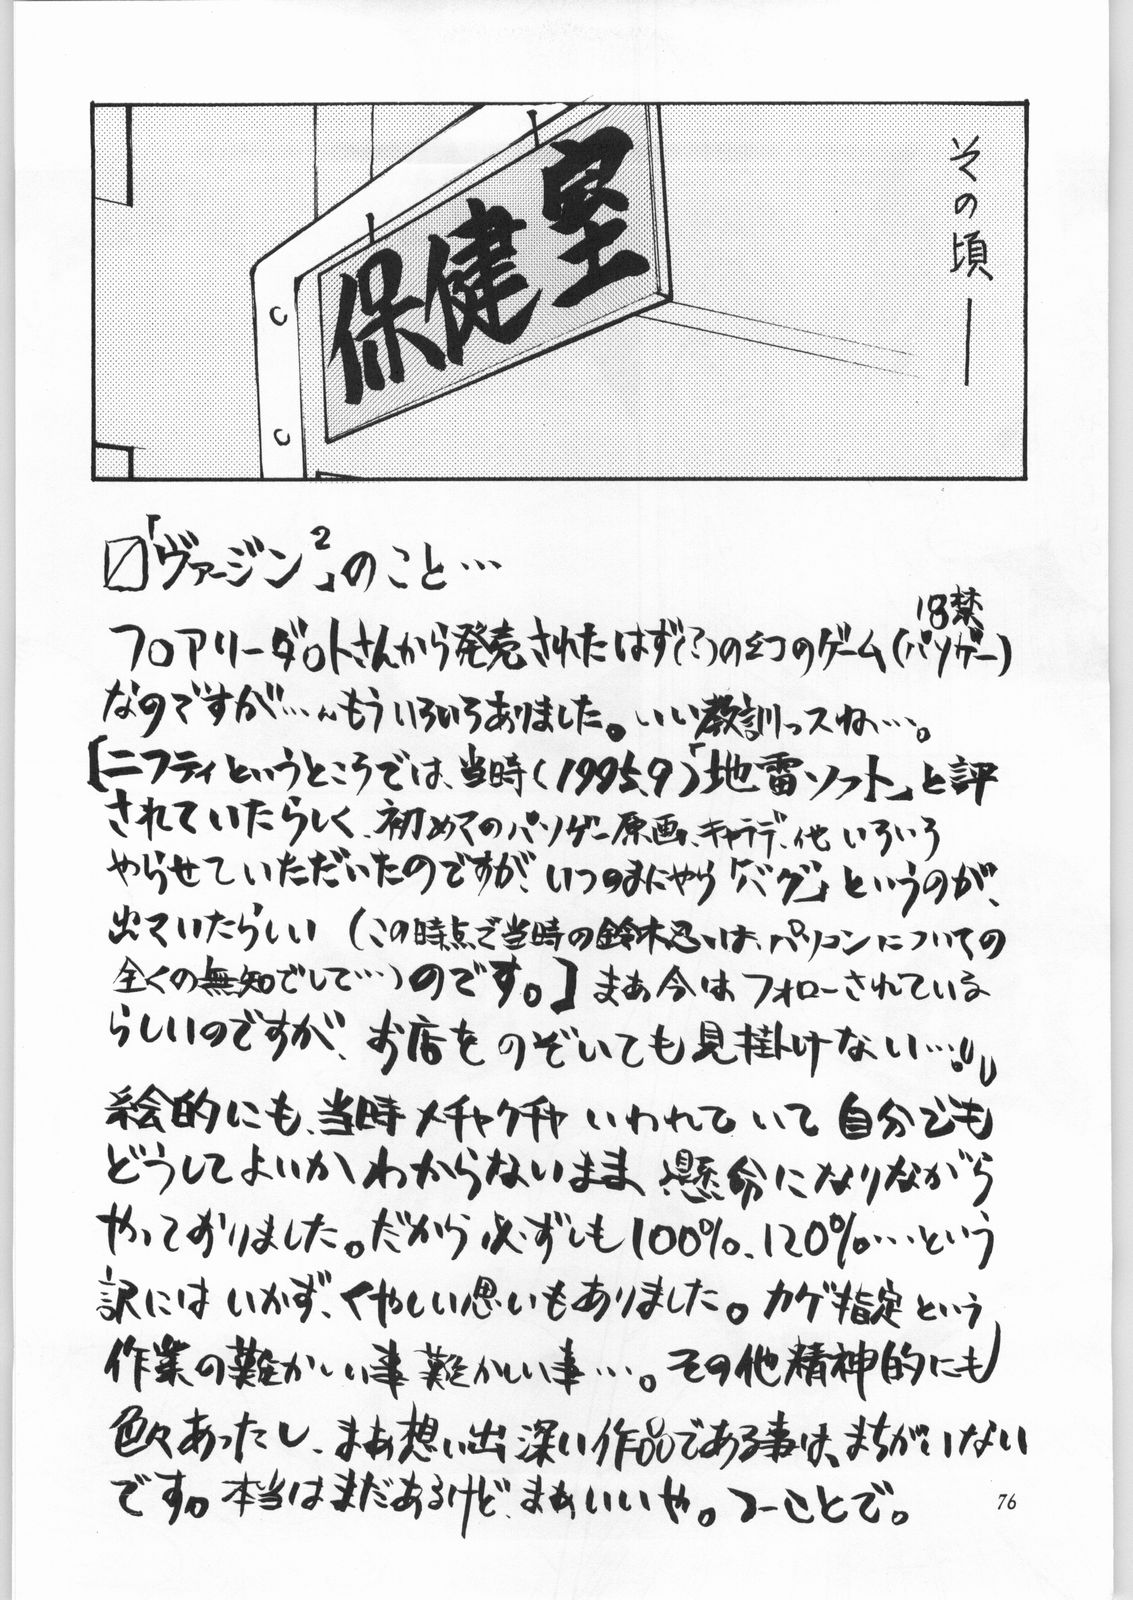 その頃―
保健室
「ヴァージン²」のこと…
18禁
フロアリーダロトさんから発売されたはず(?)の幻のゲーム(パソゲー)
なのですが…んもういろいろありました。いい教訓っスね…。
[ニフティというところでは、当時(1995、9)「地雷ソフト」と評
されていたらしく、初めてのパソゲー原画、キャラデ、他いろいろ
やらせていただいたのですが、いつのまにやら「バグ」というのが、
出ていたらしい(この時点で当時の鈴木忍は、パソコンについての
全くの無知でして…)のです。]まあ今はフォローされている
らしいのですが、お店をのぞいても見掛けない…。
絵的にも、当時メチャクチャいわれていて自分でも
どうしてよいかわからないまま、懸命になりながら
やっておりました。だから必ずしも100%、120%…という
訳にはいかず、くやしい思いもありました。カゲ指定という
作業の難かしい事難かしい事…。その他精神的にも
色々あったし、まあ想い出深い作品である事は、まちがいない
です。本当はまだあるけど、まぁいいや。つーことで。
76